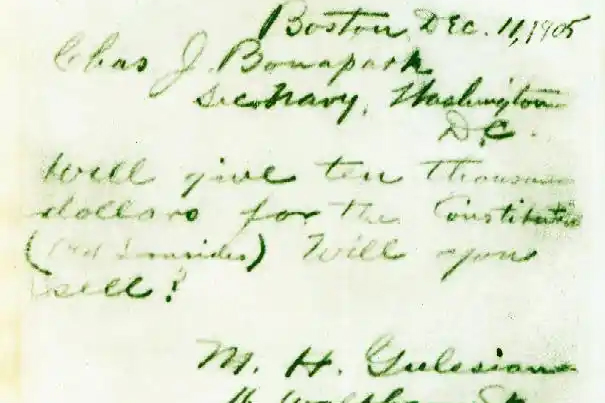 Boston, Dec. 11, 1905
Chas J. Bonapart
Sec. Navy, Washington
D.C.
Will give ten thousand
dollars for the Constitution
(Old Ironsides) Will you
sell?
M. H. Gulesian
16 Waltham St